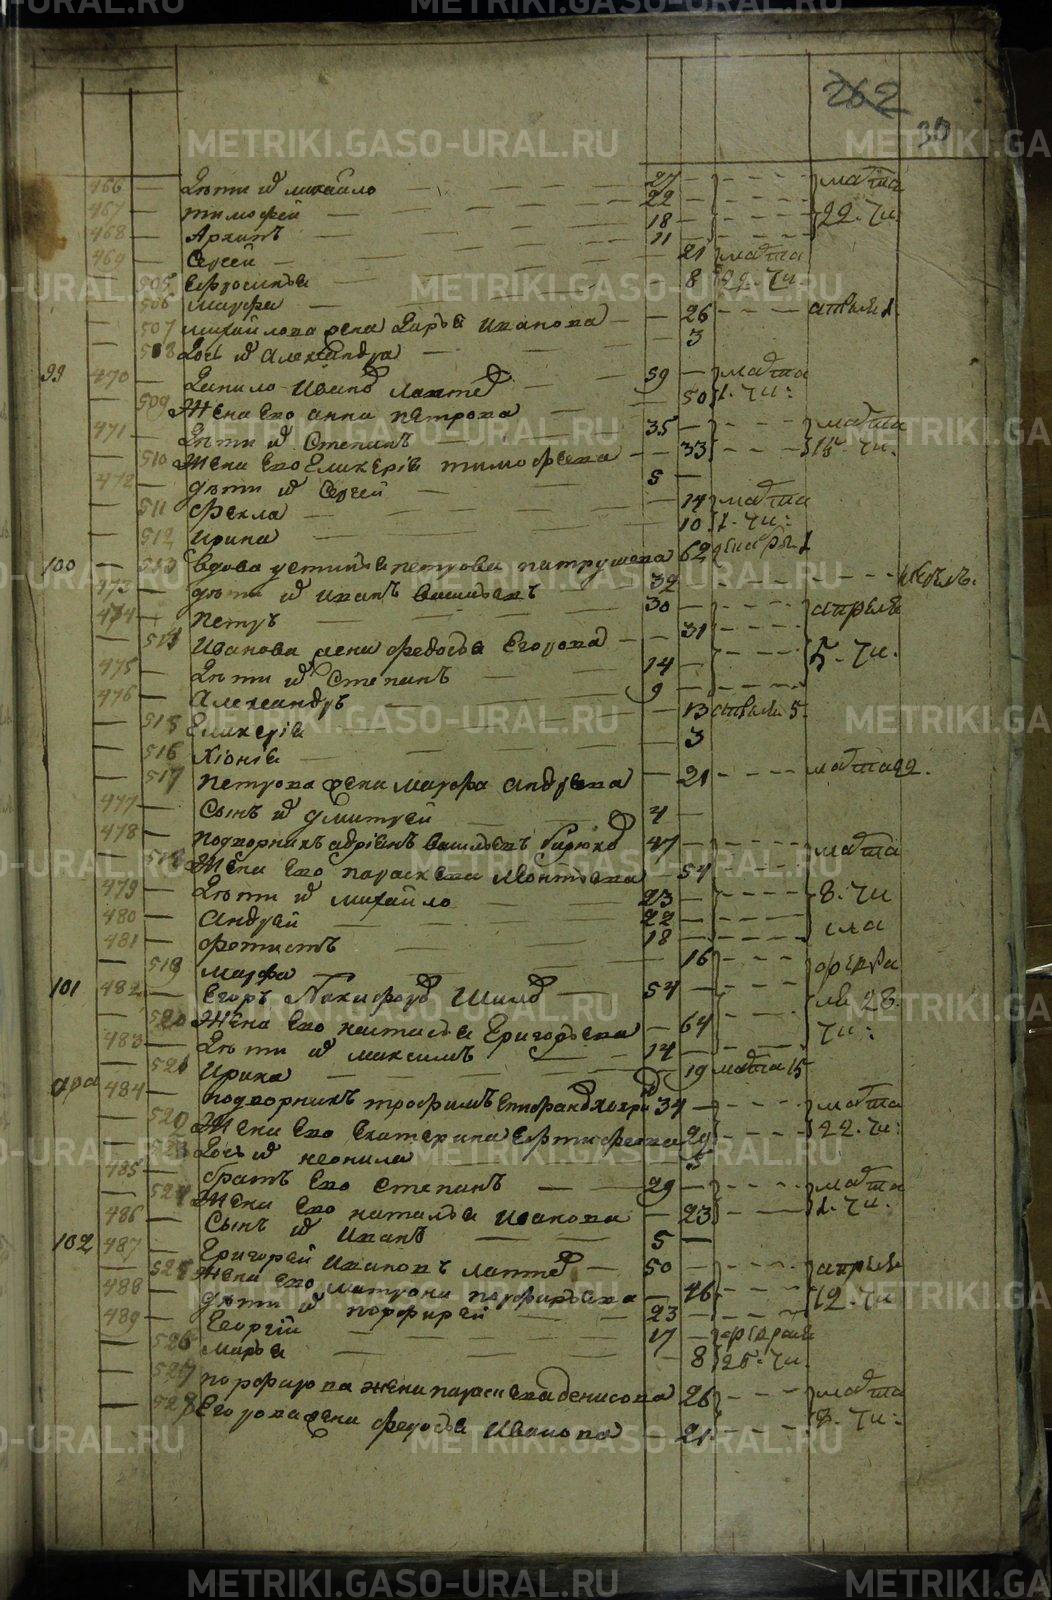 262
30
466 — Дѣти их михайло — 27 — марта
467 — тимофеи — 22 — 22. чи.
468 — Архипъ — 18
469 — Сергей — 11
505 Ефросинья — 21 марта
506 марфа — 8 22. чи.
507 михайлова жена Дарья иванова — 26 — апреля 1.
508 Дочь их Александра — 3
99 470 — Данило Иванов Лаптев 59 — марта
509 Жена Ево анна петрова — 50 1. чи:
471 — Дѣти их Степанъ — 35 — марта
510 Жена Ево Гликерiя тимофеева — 33 — 15. чи.
472 — дѣти их Сергей — 5 —
511 Фекла — 14 марта
512 Ирина — 10 1. чи:
100 — 513 Вдова устинья петрова патрушева 62
473 — дѣти их иванъ васильевъ — 32
474 — петръ — 30 — апреля
514 Иванова жена федосья Егорова — 31 — 5. чи.
475 — Дѣти их Степанъ — 14 —
476 — Александръ — 9 —
515 Гликерiя — 13 апреля 5.
516 Хiонiя — 3
517 петрова жена марфа андреева — 21 — марта 22.
477 — Сынъ их дмитрей — 4 —
478 — подворникъ адрiянъ васильевъ 47 — марта
518 Жена Ево параскева Леонтьева — 54
479 — Дѣти их михайло — 23 — 8. чи
480 — андрей — 22 — сла
481 — фотистъ — 18
519 марфа — 16 — февра
101 482 — Егоръ Никифоров Шилов — 54 — ля 23.
520 Жена Ево настасья Григорьева — 64 — чи:
483 — Дѣти их максимъ — 14 —
521 Ирина — 19 марта 15
484 — подворникъ трофимъ 34 — марта
Жена Ево Екатерина 29 — 22. чи:
523 Дочь их неонила — 5
485 — братъ Ево Степанъ — 29 — марта
524 Жена Ево наталья иванова — 23 — 1. чи.
486 — Сынъ их иванъ — 5 —
102 487 — Григорей ивановъ лаптев — 50 — апреля
525 Жена Ево матрона — 46 — 12. чи
488 — дѣти их порфирей — 23
489 — Георгiй — 17 — февраля
526 марья — 8 25. чи.
527 порфирова жена параскева денисова 26 — марта
528 Егорова жена федосья Иванова — 21 — 8. чи:
METRIKI.GASO-URAL.RU